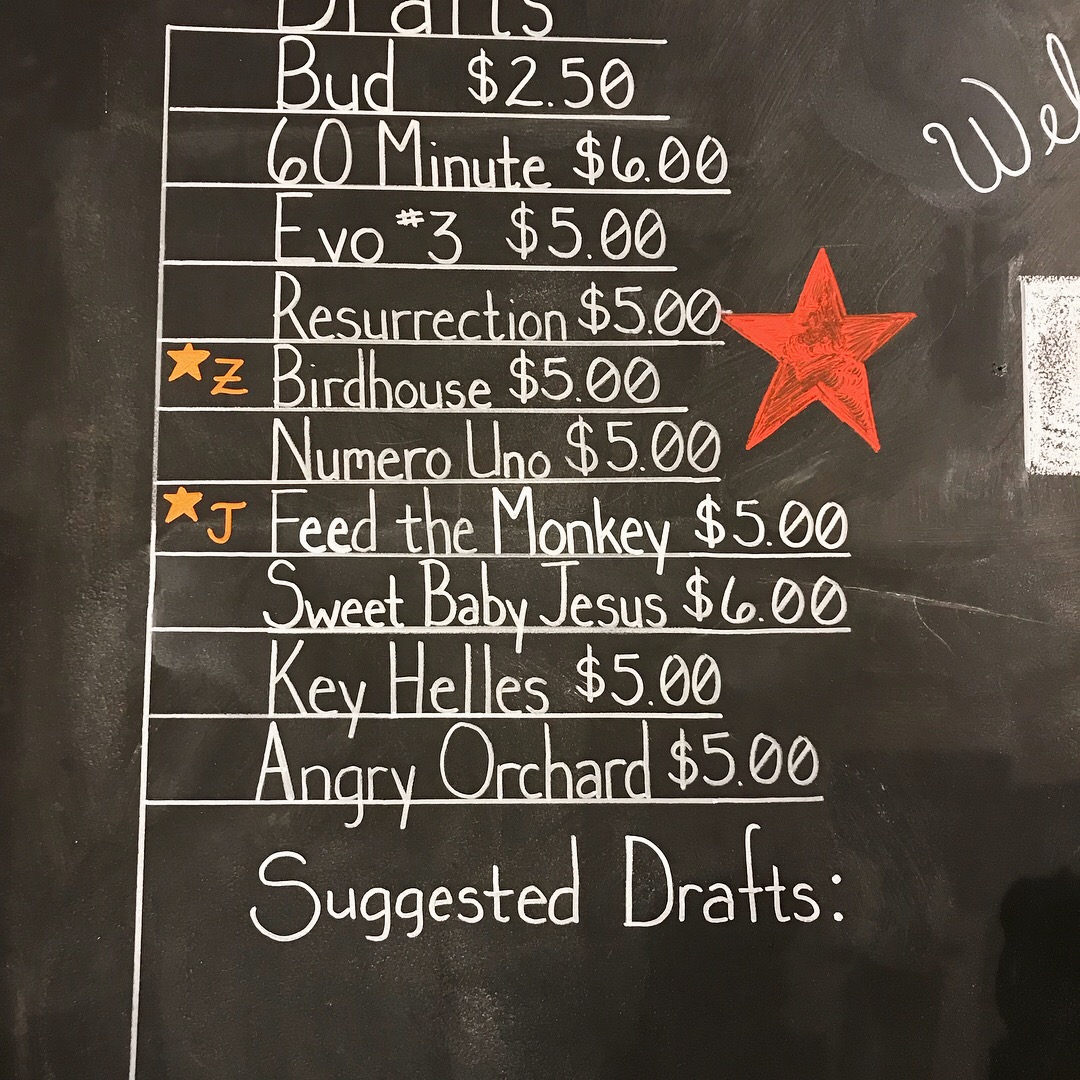 Drafts
Bud $2.50
60 Minute $6.00
Evo #3 $5.00
Resurrection $5.00
Z Birdhouse $5.00
Numero Uno $5.00
J Feed the Monkey $5.00
Sweet Baby Jesus $6.00
Key Helles $5.00
Angry Orchard $5.00
Suggested Drafts:
Wel